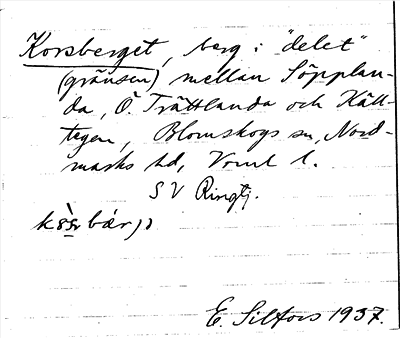 Korsberget, berg i "delet"
(gränsen) mellan Söpplan-
da, Ö. Trättlanda och Käll-
tegen, Blomskogs sn, Nord-
marks hd, Vrml l.
SV Ringtj.
E. Silfors 1937.